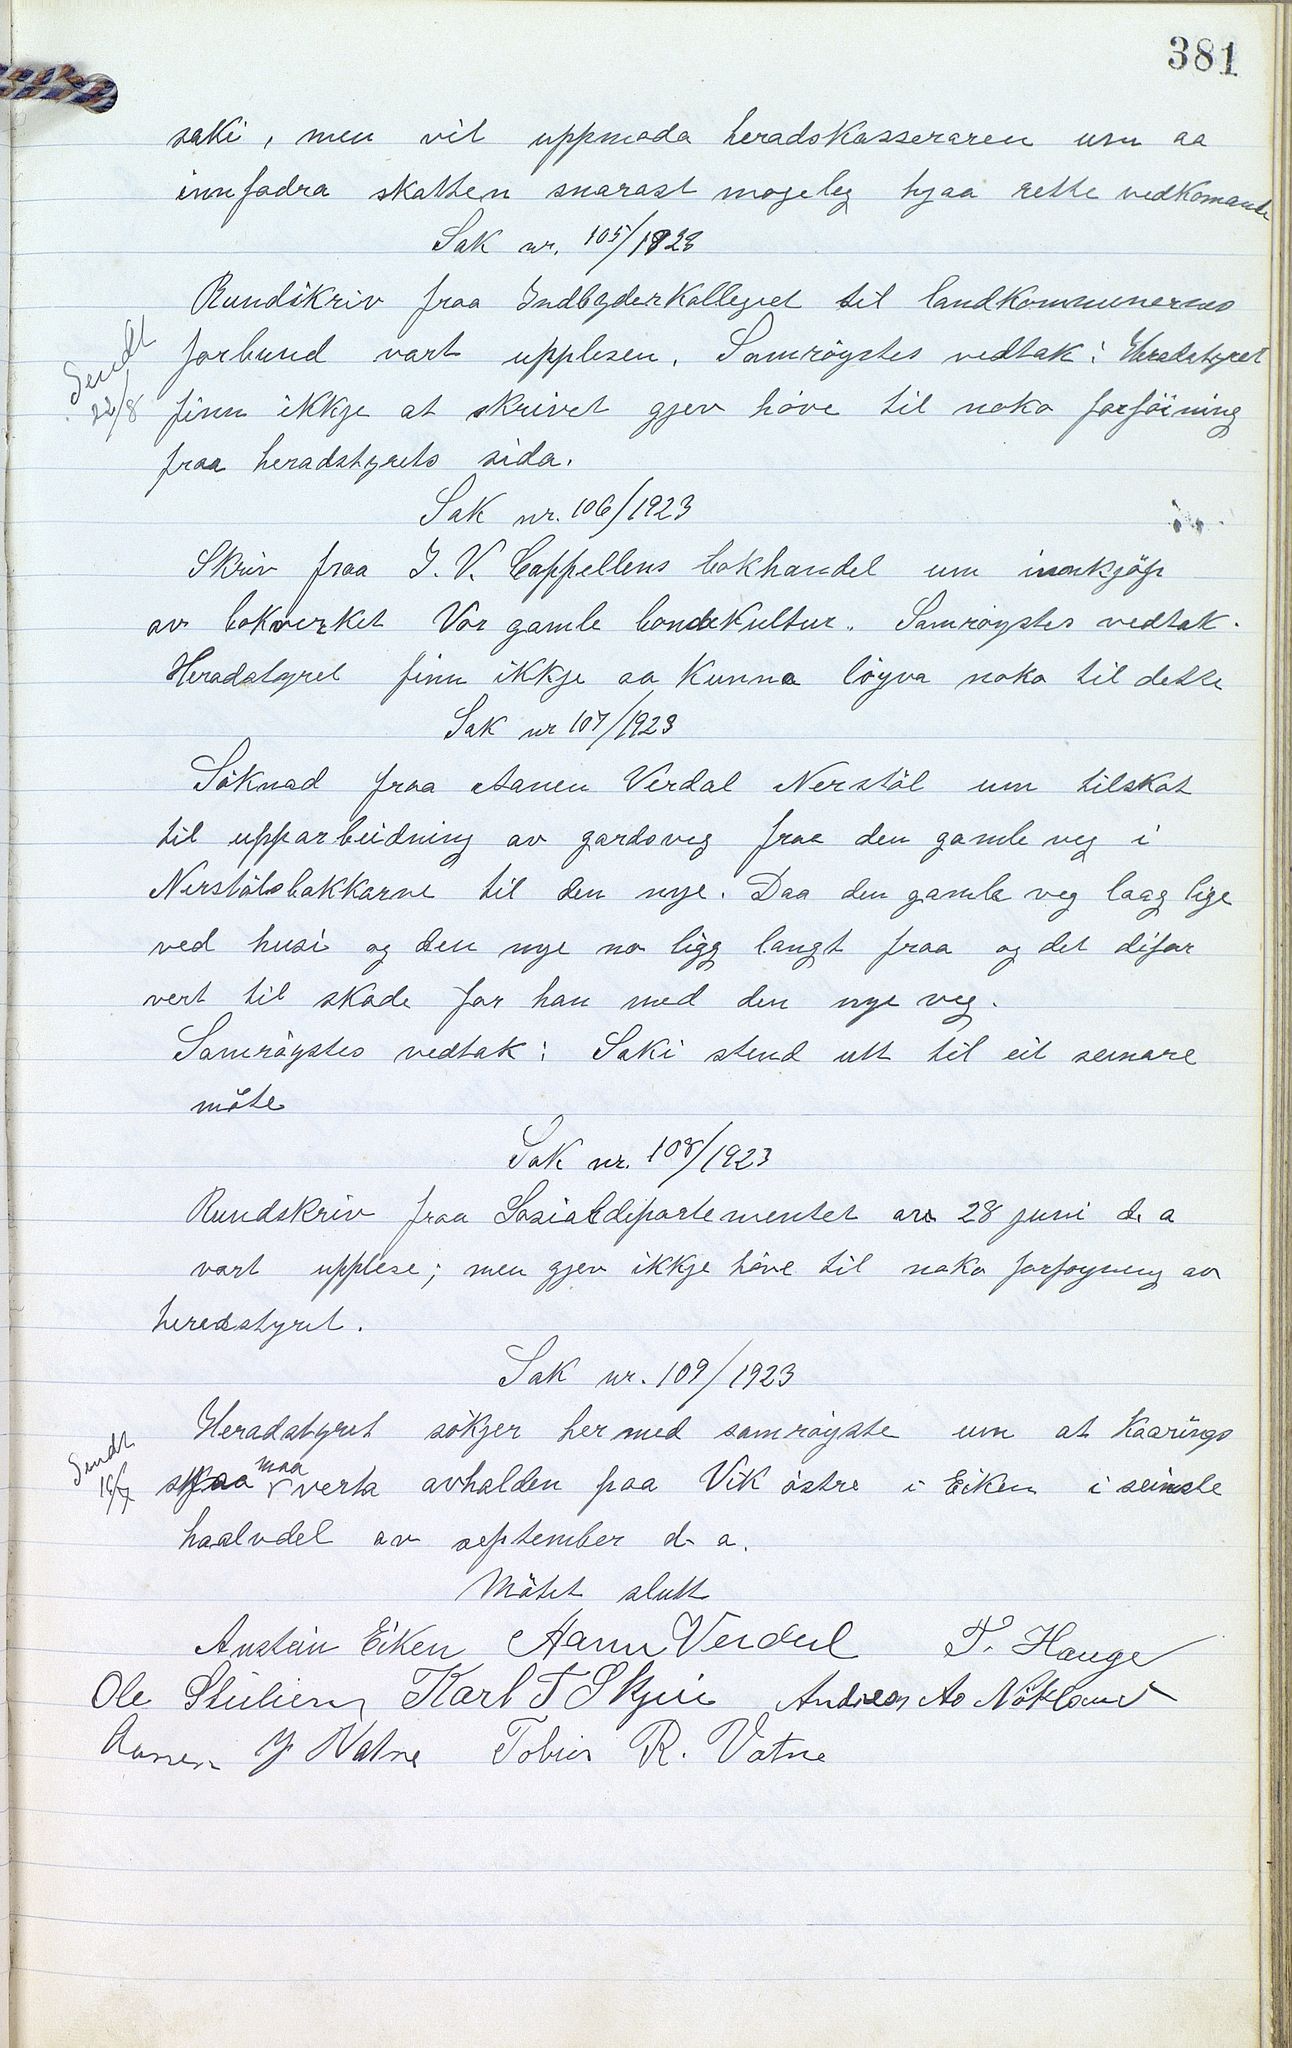 381
saki, men vil uppmoda heradskasseraren um aa
innfodra skatten snarast mogeleg hjaa rette vedkomande
Sak nr. 105/1923
Rundskriv fraa Indbyderkollegiet til landkommunernes
Sendt
22/8
forbund vart upplesen. Samröystes vedtak: Heradstyret
finn ikkje at skrivet gjev höve til noko forföining
fraa heradstyrets sida.
Sak nr. 106/1923
Skriv fraa J. V. Cappellens bokhandel um innkjöp
av bokverket Vor gamle bondekultur. Samröystes vedtak.
Heradstyret finn ikkje aa kunna löyva noko til dette
Sak nr 107/1923
Söknad fraa Aanen Verdal Nerstöl um tilskot
til upparbeidning av gardsveg fraa den gamle veg i
Nerstölsbakkarne til den nye. Daa den gamle veg laag lige
ved husi og den nye no ligg langt fraa og det difor
vert til skade for han med den nye veg.
Samröystes vedtak: Saki stend utt til eit seinare
möte
Sak nr. 108/1923
Rundskriv fraa Sosialdepartementet av 28 juni d. a
vart upplese; men gjev ikkje höve til noko forföyning av
heradstyret.
Sak nr. 109/1923
Heradstyret sökjer hermed samröyste um at kaarings
Sendt
maa
verta avhalden paa Vik östre i Eiken i seinste
haalvdel av september d. a.
Mötet slutt
Austein Eiken Aanen Verdal T. Hauge
Ole Stulien Karl T Skjeie Andreas As Nökland
Aanen J Vatne Tobias R. Vatne